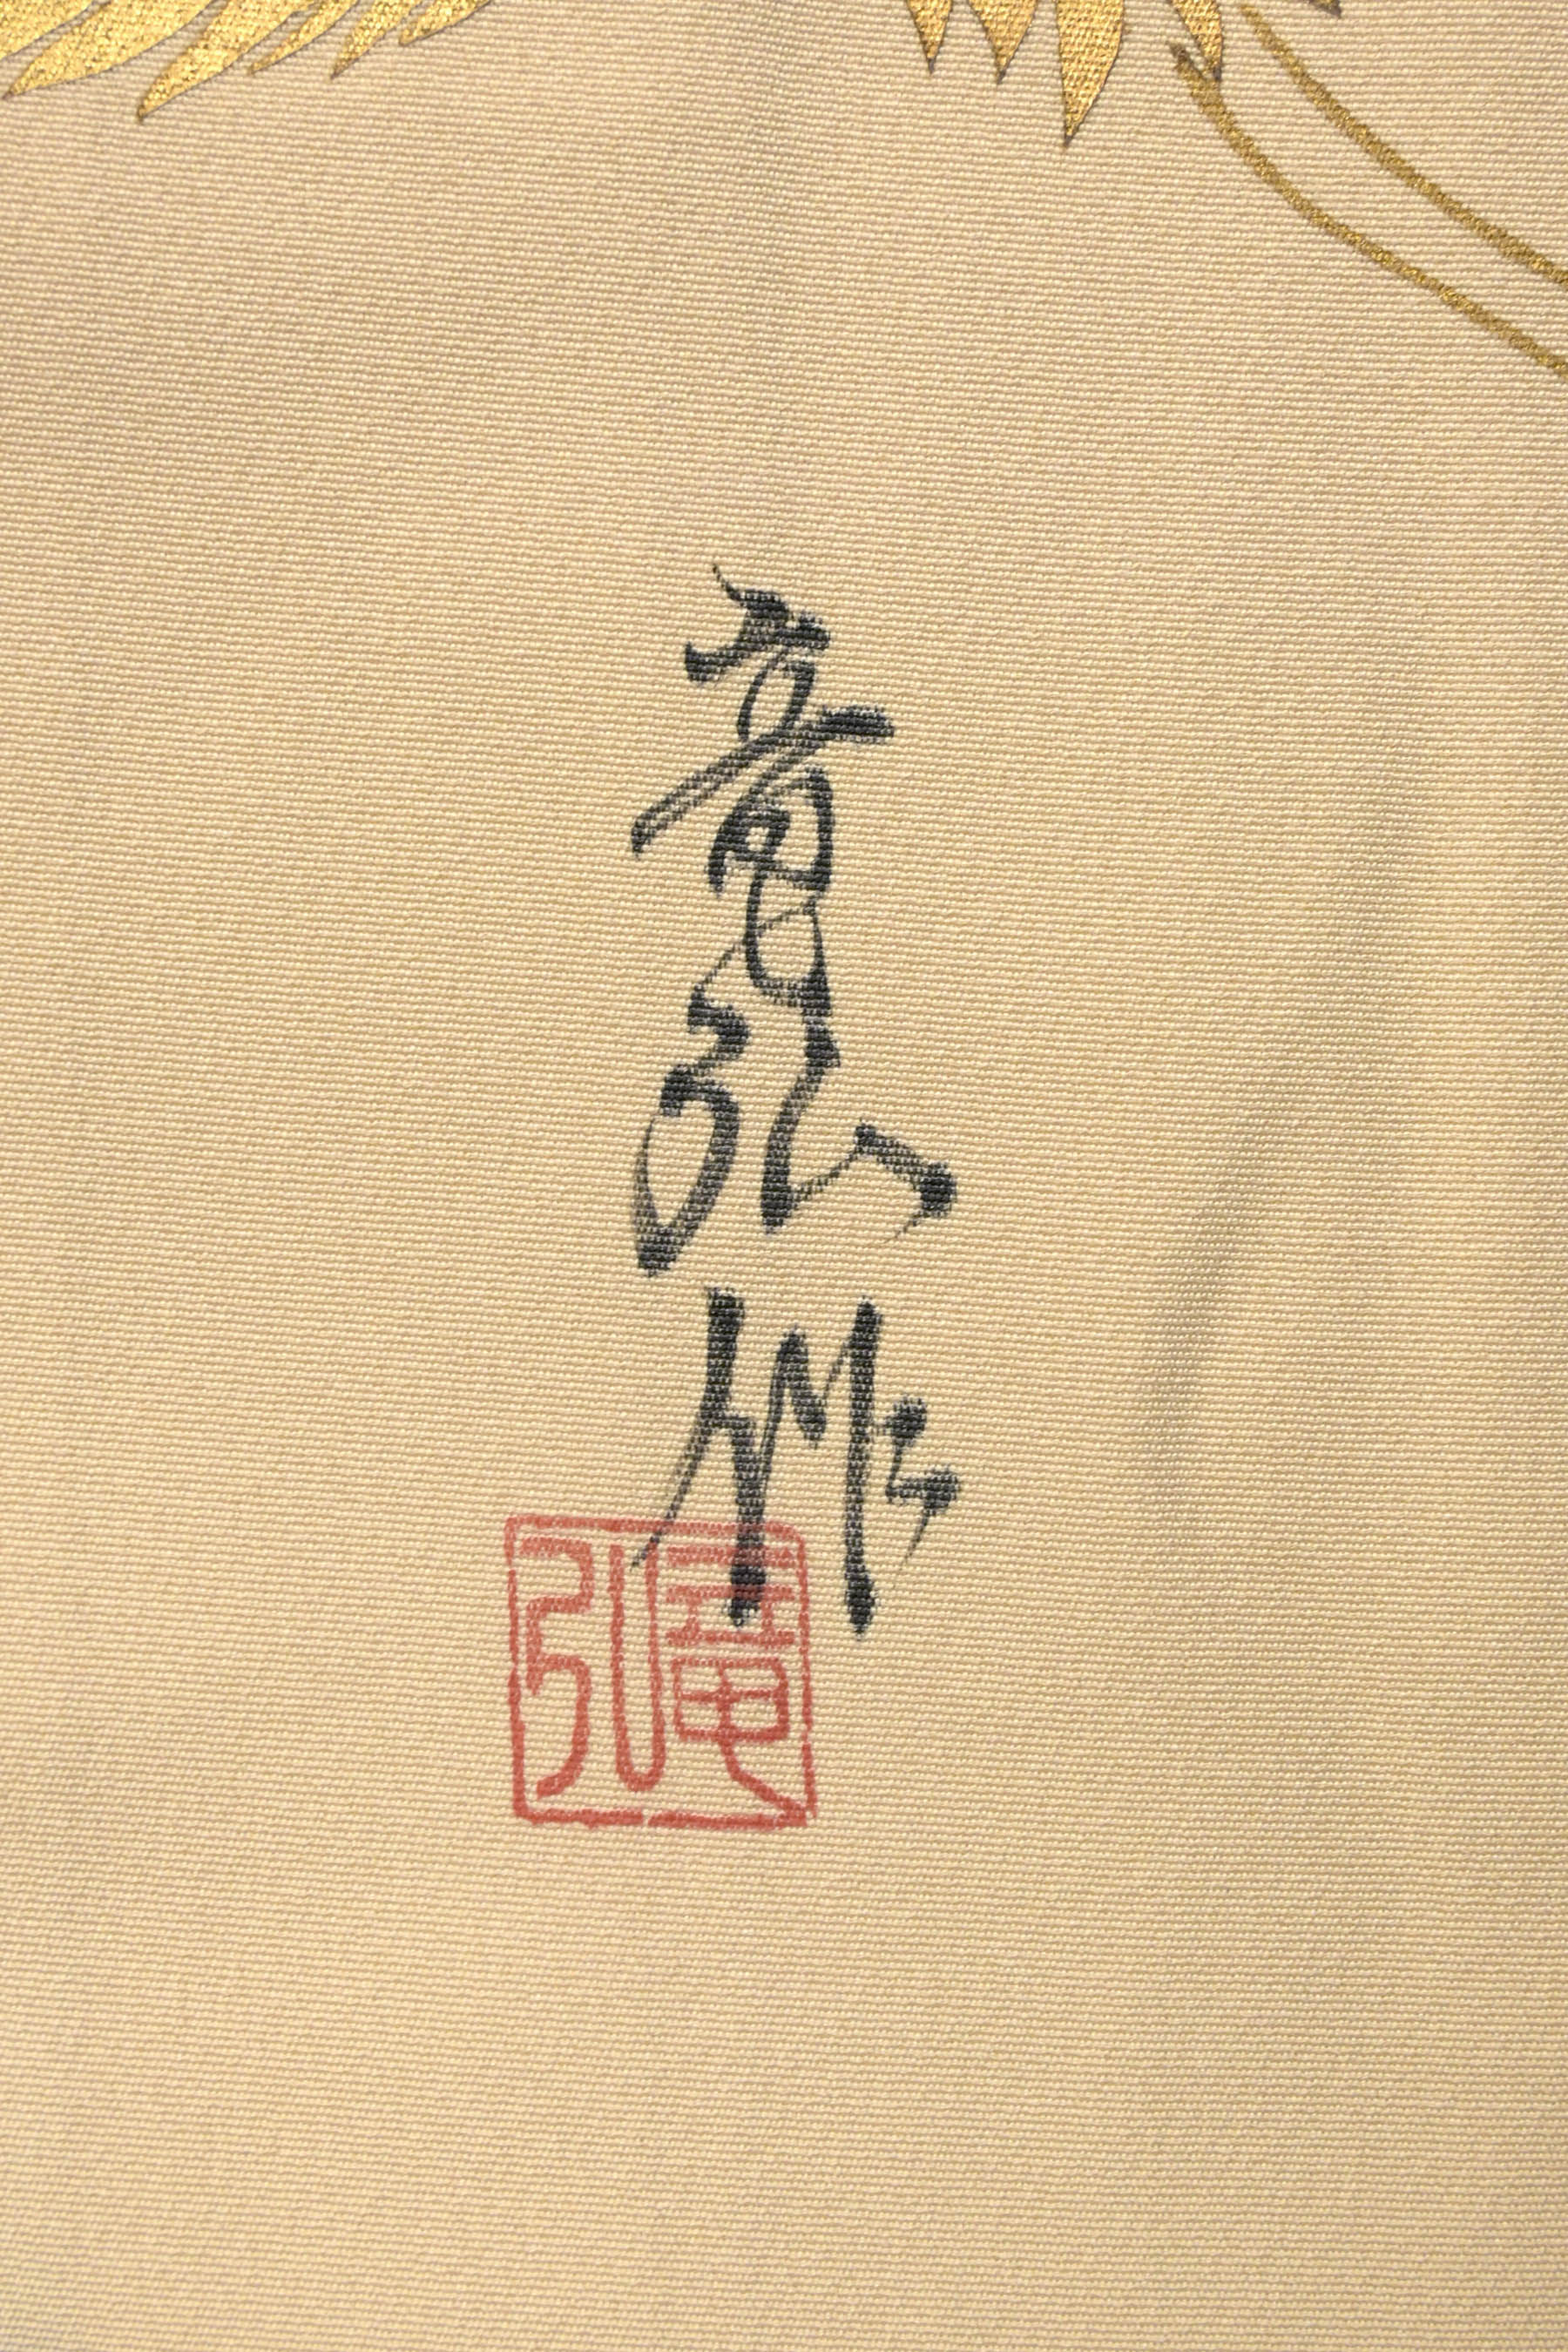 竜弘作
竜弘